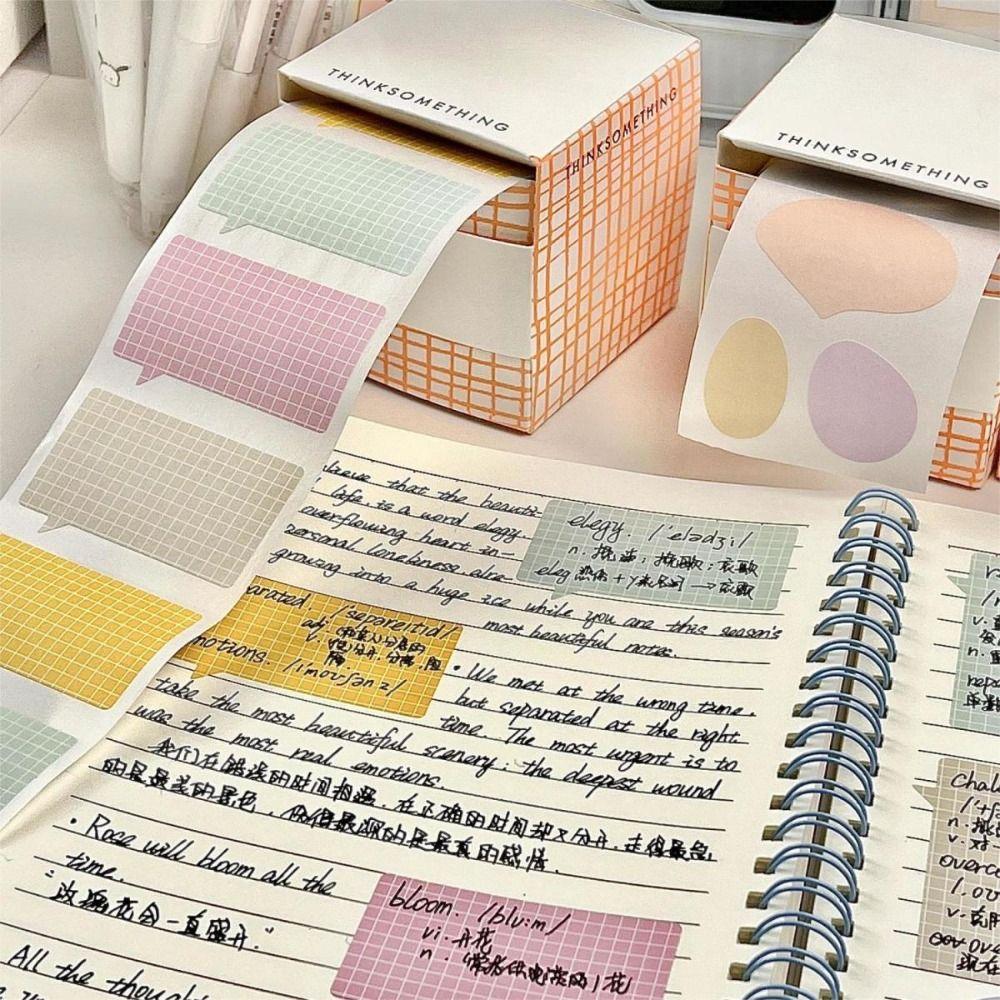 THINKSOMETHING
THINKSOMETHING
THINKSOMETHING
that the beauti-
life. is a word elegy.
overflowing heart in-
personal loneliness
growing into a huge ice while you are this season's
most beautiful notes.
elegy. /ˈelədʒi/
n. 挽
arated. /ˈsepəreitid/
adj.
v. 分开. 分离.
emotions. /ɪˈmoʊʃənz/
• We met at the wrong time.
but separated at the right
time. The most urgent is to
take the most beautiful scenery; the deepest wound
was the most real emotions.
我们在错误的时间相遇. 在正确的时间却又分开. 走得最急
的是最美的景色, 伤得最深的是最真的感情.
• Rose will bloom all the
time.
"玫瑰花会一直盛开."
bloom. /blu:m/
vi. 开花
n.
All the though
v.
n.
repe
Chal
/tʃ
n. 挑
v. 对
overco
v. 克
over
现在